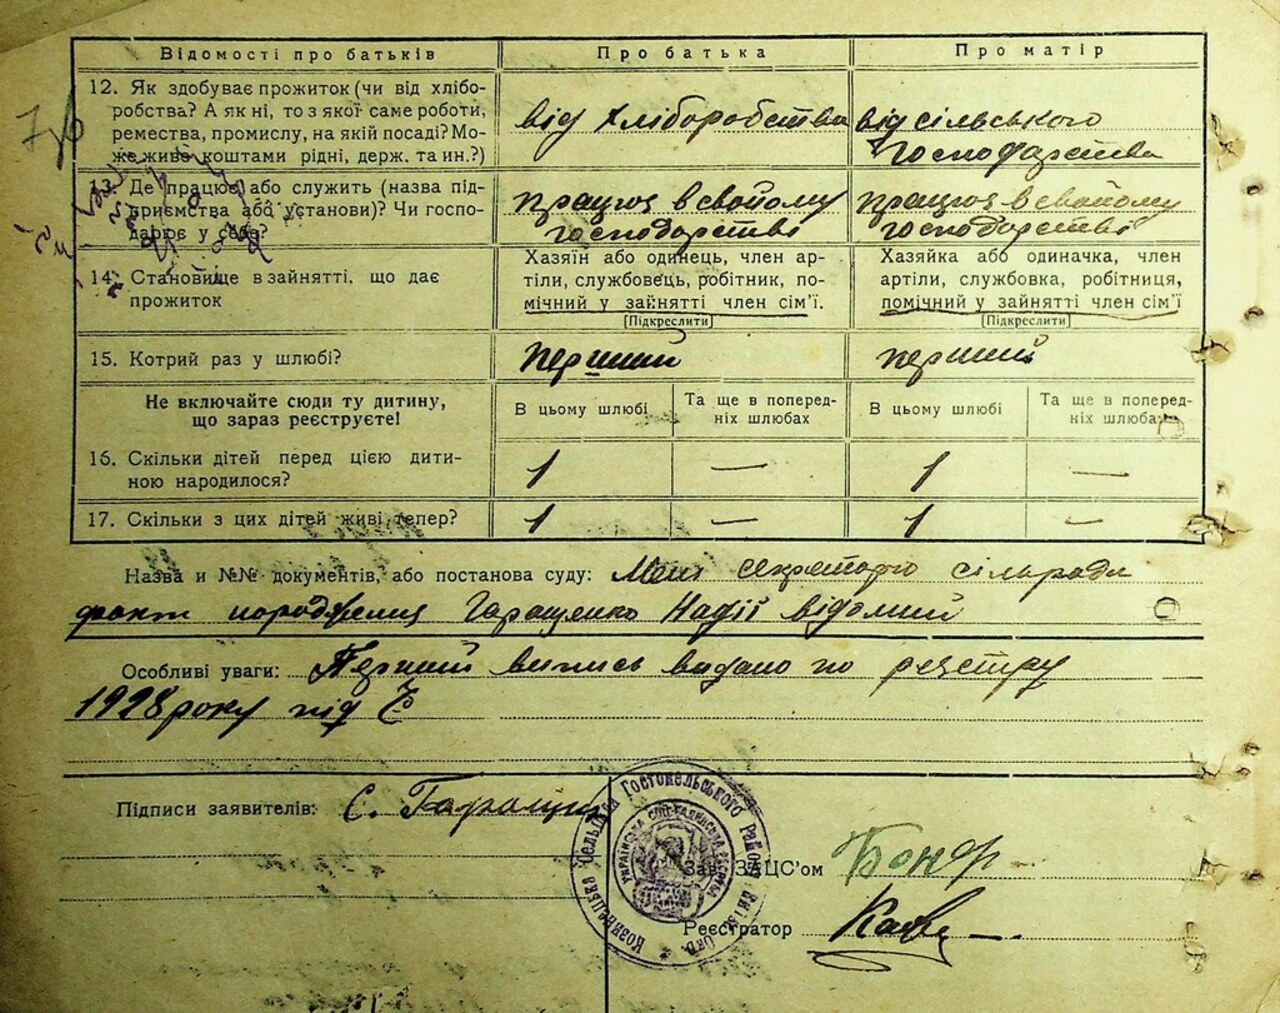 Відомості про батьків
Про батька
Про матір
12. Як здобуває прожиток (чи від хлібо-
робства? А як ні, то з якої саме роботи,
ремества, промислу, на якій посаді? Мо-
же живе коштами рідні, держ. та ин.?)
від хліборобства
від сільського
господарства
13. Де працює або служить (назва під-
приємства або установи)? Чи госпо-
дарює у себе?
працює в свойому
господарстві
працює в свойому
господарстві
14. Становище в зайнятті, що дає
прожиток
Хазяїн або одинець, член ар-
тіли, службовець, робітник, по-
мічний у зайнятті член сім'ї.
[Підкреслити]
Хазяйка або одиначка, член
артіли, службовка, робітниця,
помічний у зайнятті член сім'ї
[Підкреслити]
15. Котрий раз у шлюбі?
перший
перший
Не включайте сюди ту дитину,
що зараз реєструєте!
В цьому шлюбі
Та ще в поперед-
ніх шлюбах
В цьому шлюбі
Та ще в поперед-
ніх шлюбах
16. Скільки дітей перед цією дити-
ною народилося?
1
—
1
—
17. Скільки з цих дітей живі тепер?
1
—
1
—
Назва и №№ документів, або постанова суду: Мені секретарю сільради
факт породження Гаращенко Надії відомий
Особливі уваги: Перший випись видано по реєстру
1928 року під
Підписи заявителів: С. Гаращен
Козинецька Сельрада Гостомельського району Київ. Окр.
Зав. ЗАЦС'ом
Реєстратор